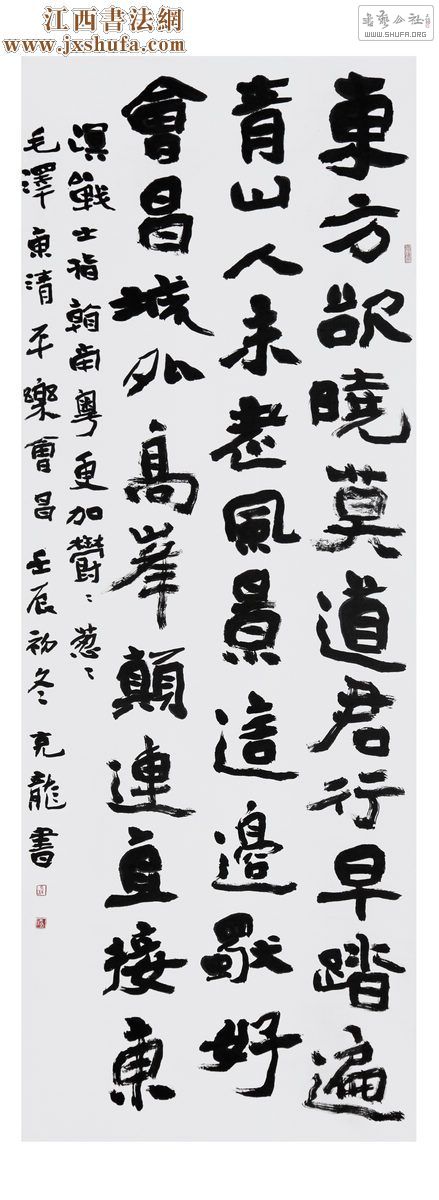 江西書法網
www.jxshufa.com
書藝公社
WWW.SHUFA.ORG
東方欲曉莫道君行早踏遍
青山人未老風景這邊獨好
會昌城外高峯顛連直接東
溟戰士指看南粵更加鬱〻葱〻
毛澤東清平樂會昌壬辰初冬克龍書